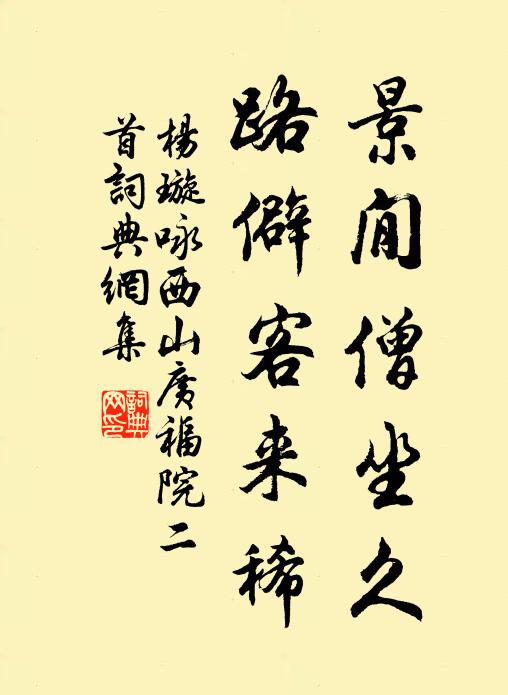 景閒僧坐久
路僻客来稀
楊璇咏西山廣福院二
首詞典網集
詞典
网印